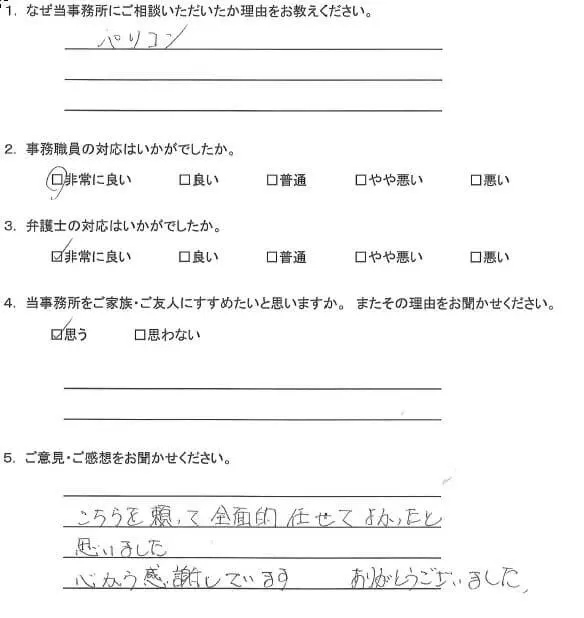 1. なぜ当事務所にご相談いただいたか理由をお教えください。
パソコン
2. 事務職員の対応はいかがでしたか。
□非常に良い □良い □普通 □やや悪い □悪い
3. 弁護士の対応はいかがでしたか。
☑非常に良い □良い □普通 □やや悪い □悪い
4. 当事務所をご家族・ご友人にすすめたいと思いますか。 またその理由をお聞かせください。
☑思う □思わない
5. ご意見・ご感想をお聞かせください。
こちらを頼って全面的任せてよかったと
思いました
心から感謝しています ありがとうございました